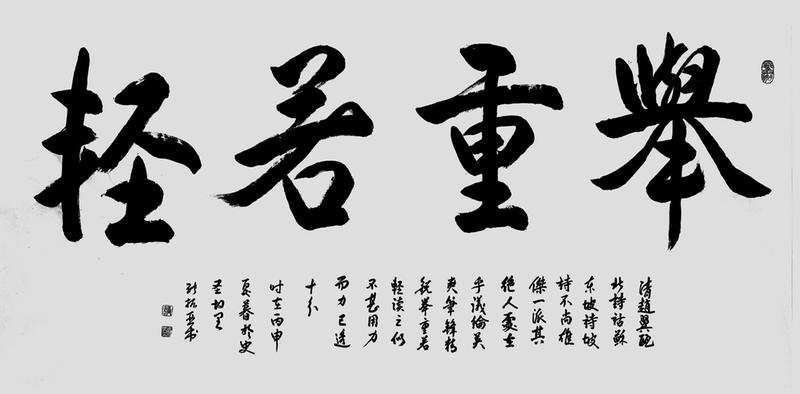 舉重若輕
清趙翼甌
北詩話蘇
东坡詩坡
詩不尚雄
傑一派其
絕人處在
乎議論英
爽筆鋒精
銳舉重若
輕讀之似
不甚用力
而力已透
十分
时在丙申
夏暮於史
圣故里
书